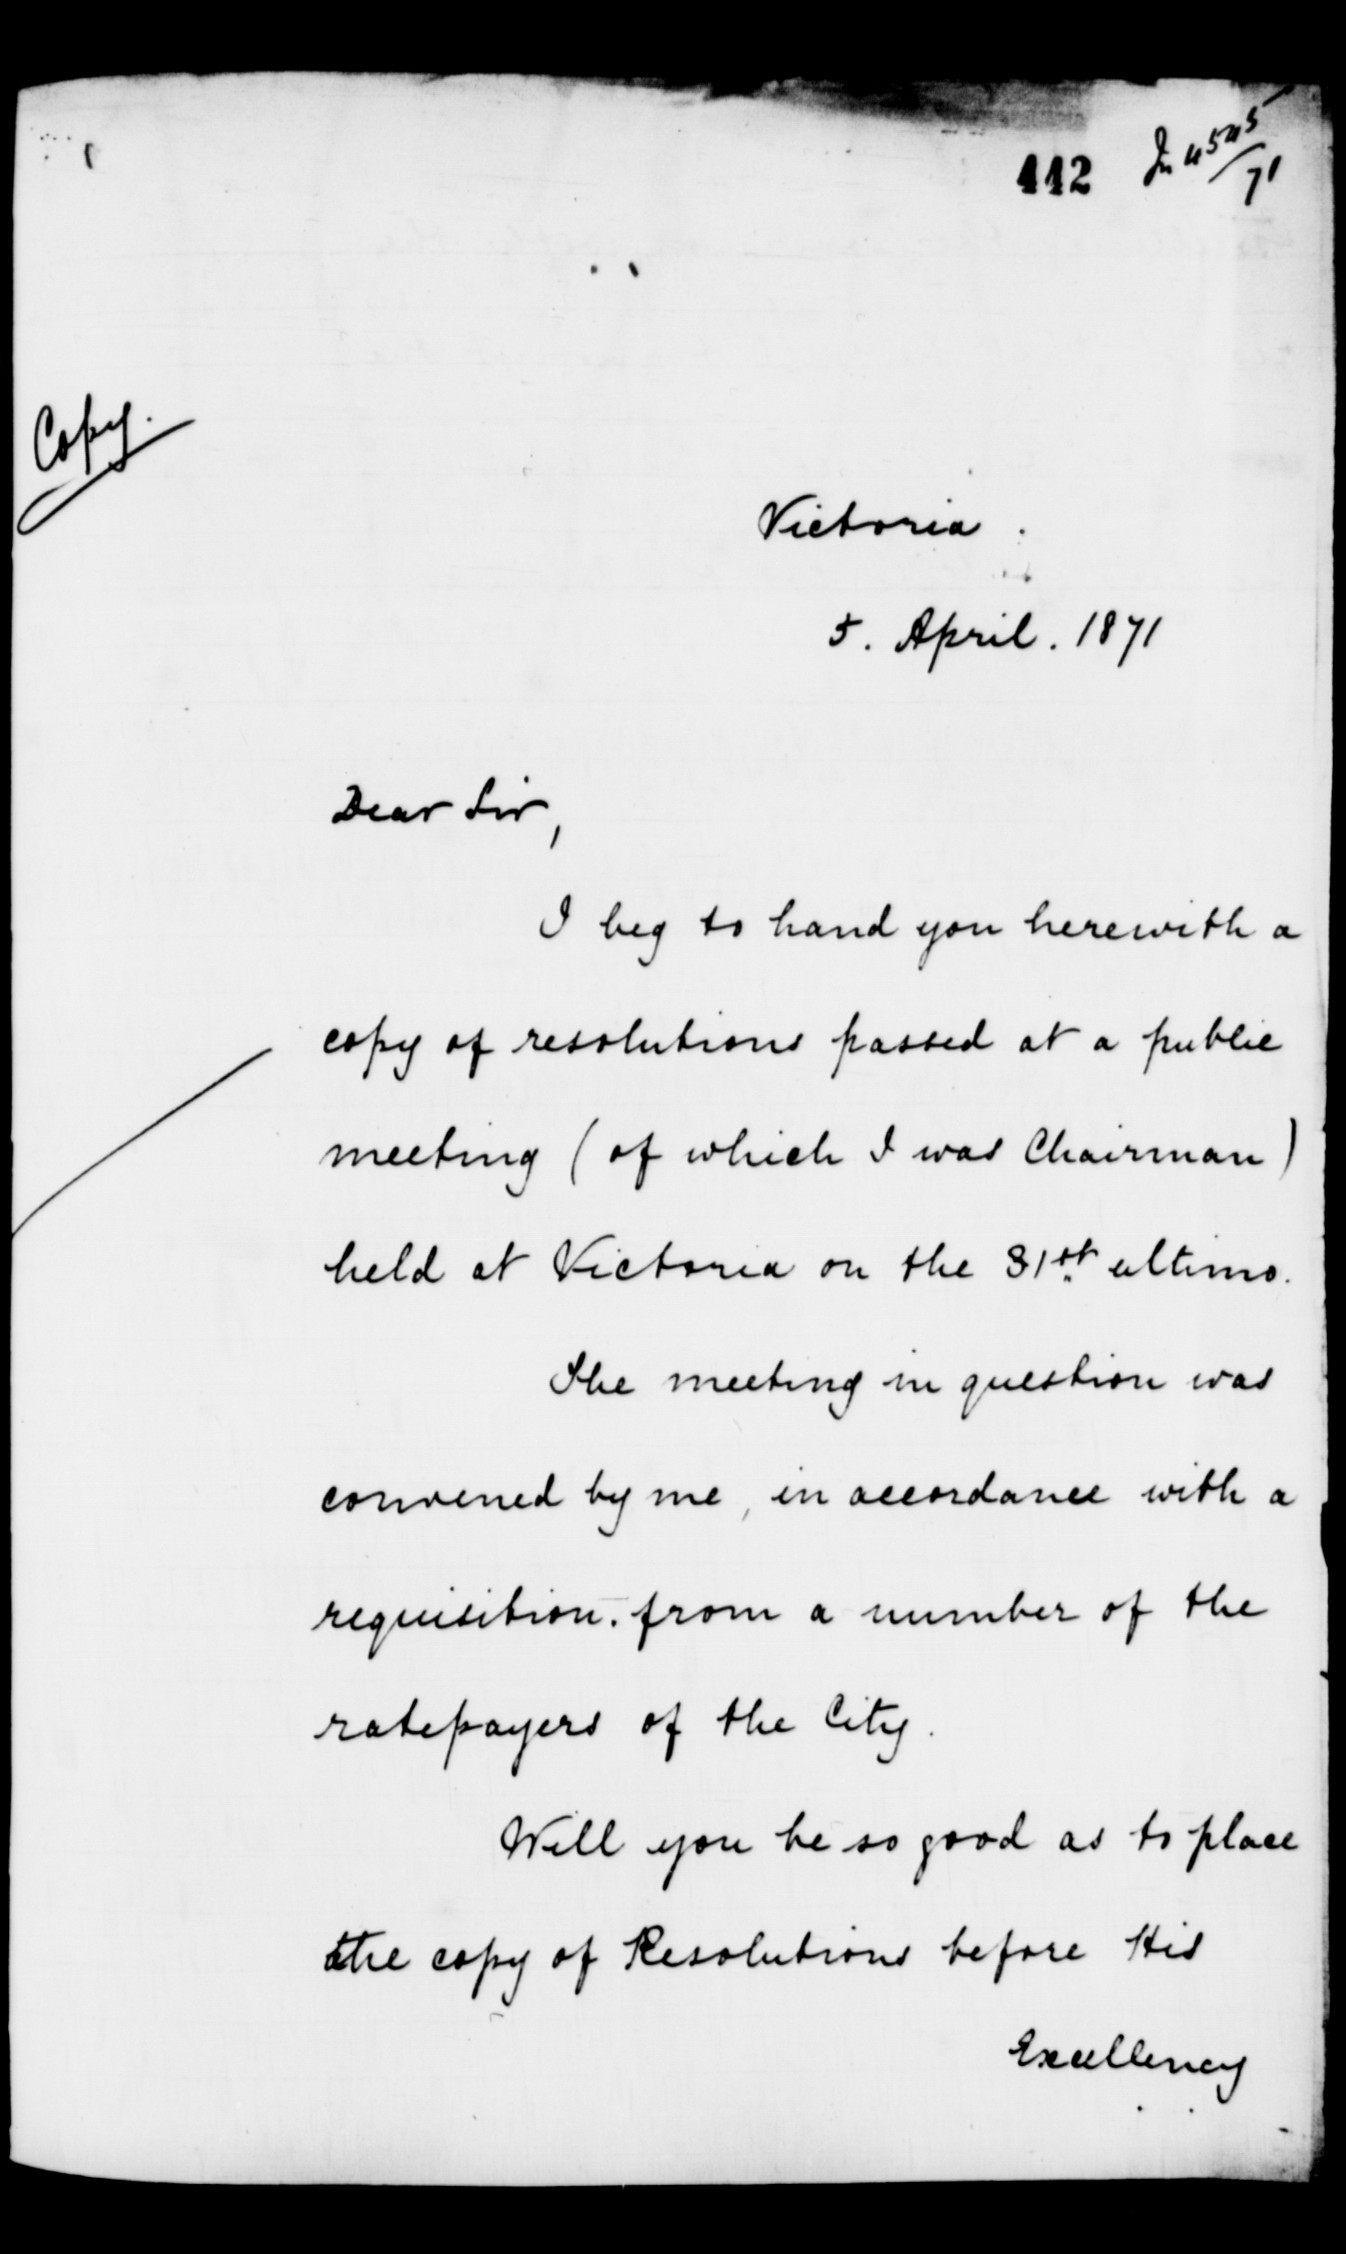 442
In 4545/71
Copy.
Victoria.
5. April. 1871
Dear Sir,
I beg to hand you herewith a
copy of resolutions passed at a public
meeting (of which I was Chairman)
held at Victoria on the 31st ultimo.
The meeting in question was
convened by me, in accordance with a
requisition. from a number of the
ratepayers of the City.
Will you be so good as to place
the copy of Resolutions before His
Excellency